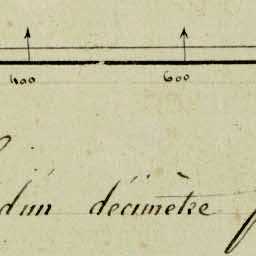 400 600
d'un décimètre